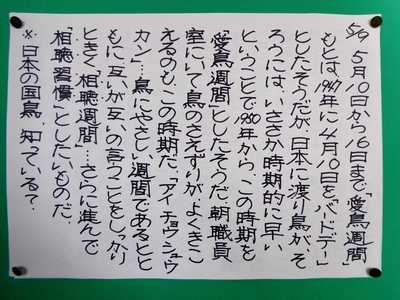 5/9 5月10日から16日まで「愛鳥週間」
もとは1947年に4月10日を「バードデー」
としたそうだが、日本に渡り鳥がそ
ろうには、いささか時期的に早い
ということで1950年から、この時期を
「愛鳥週間」としたそうだ。朝、職員
室にいて鳥のさえずりがよくきこ
えるのも、この時期だ。「アイチョウシュウ
カン」…鳥にやさしい週間であるとと
もに互いが互いの言うことをしっかり
ときく「相聴週間」…さらに進んで
「相聴習慣」としたいものだ。
※日本の国鳥、知っている？